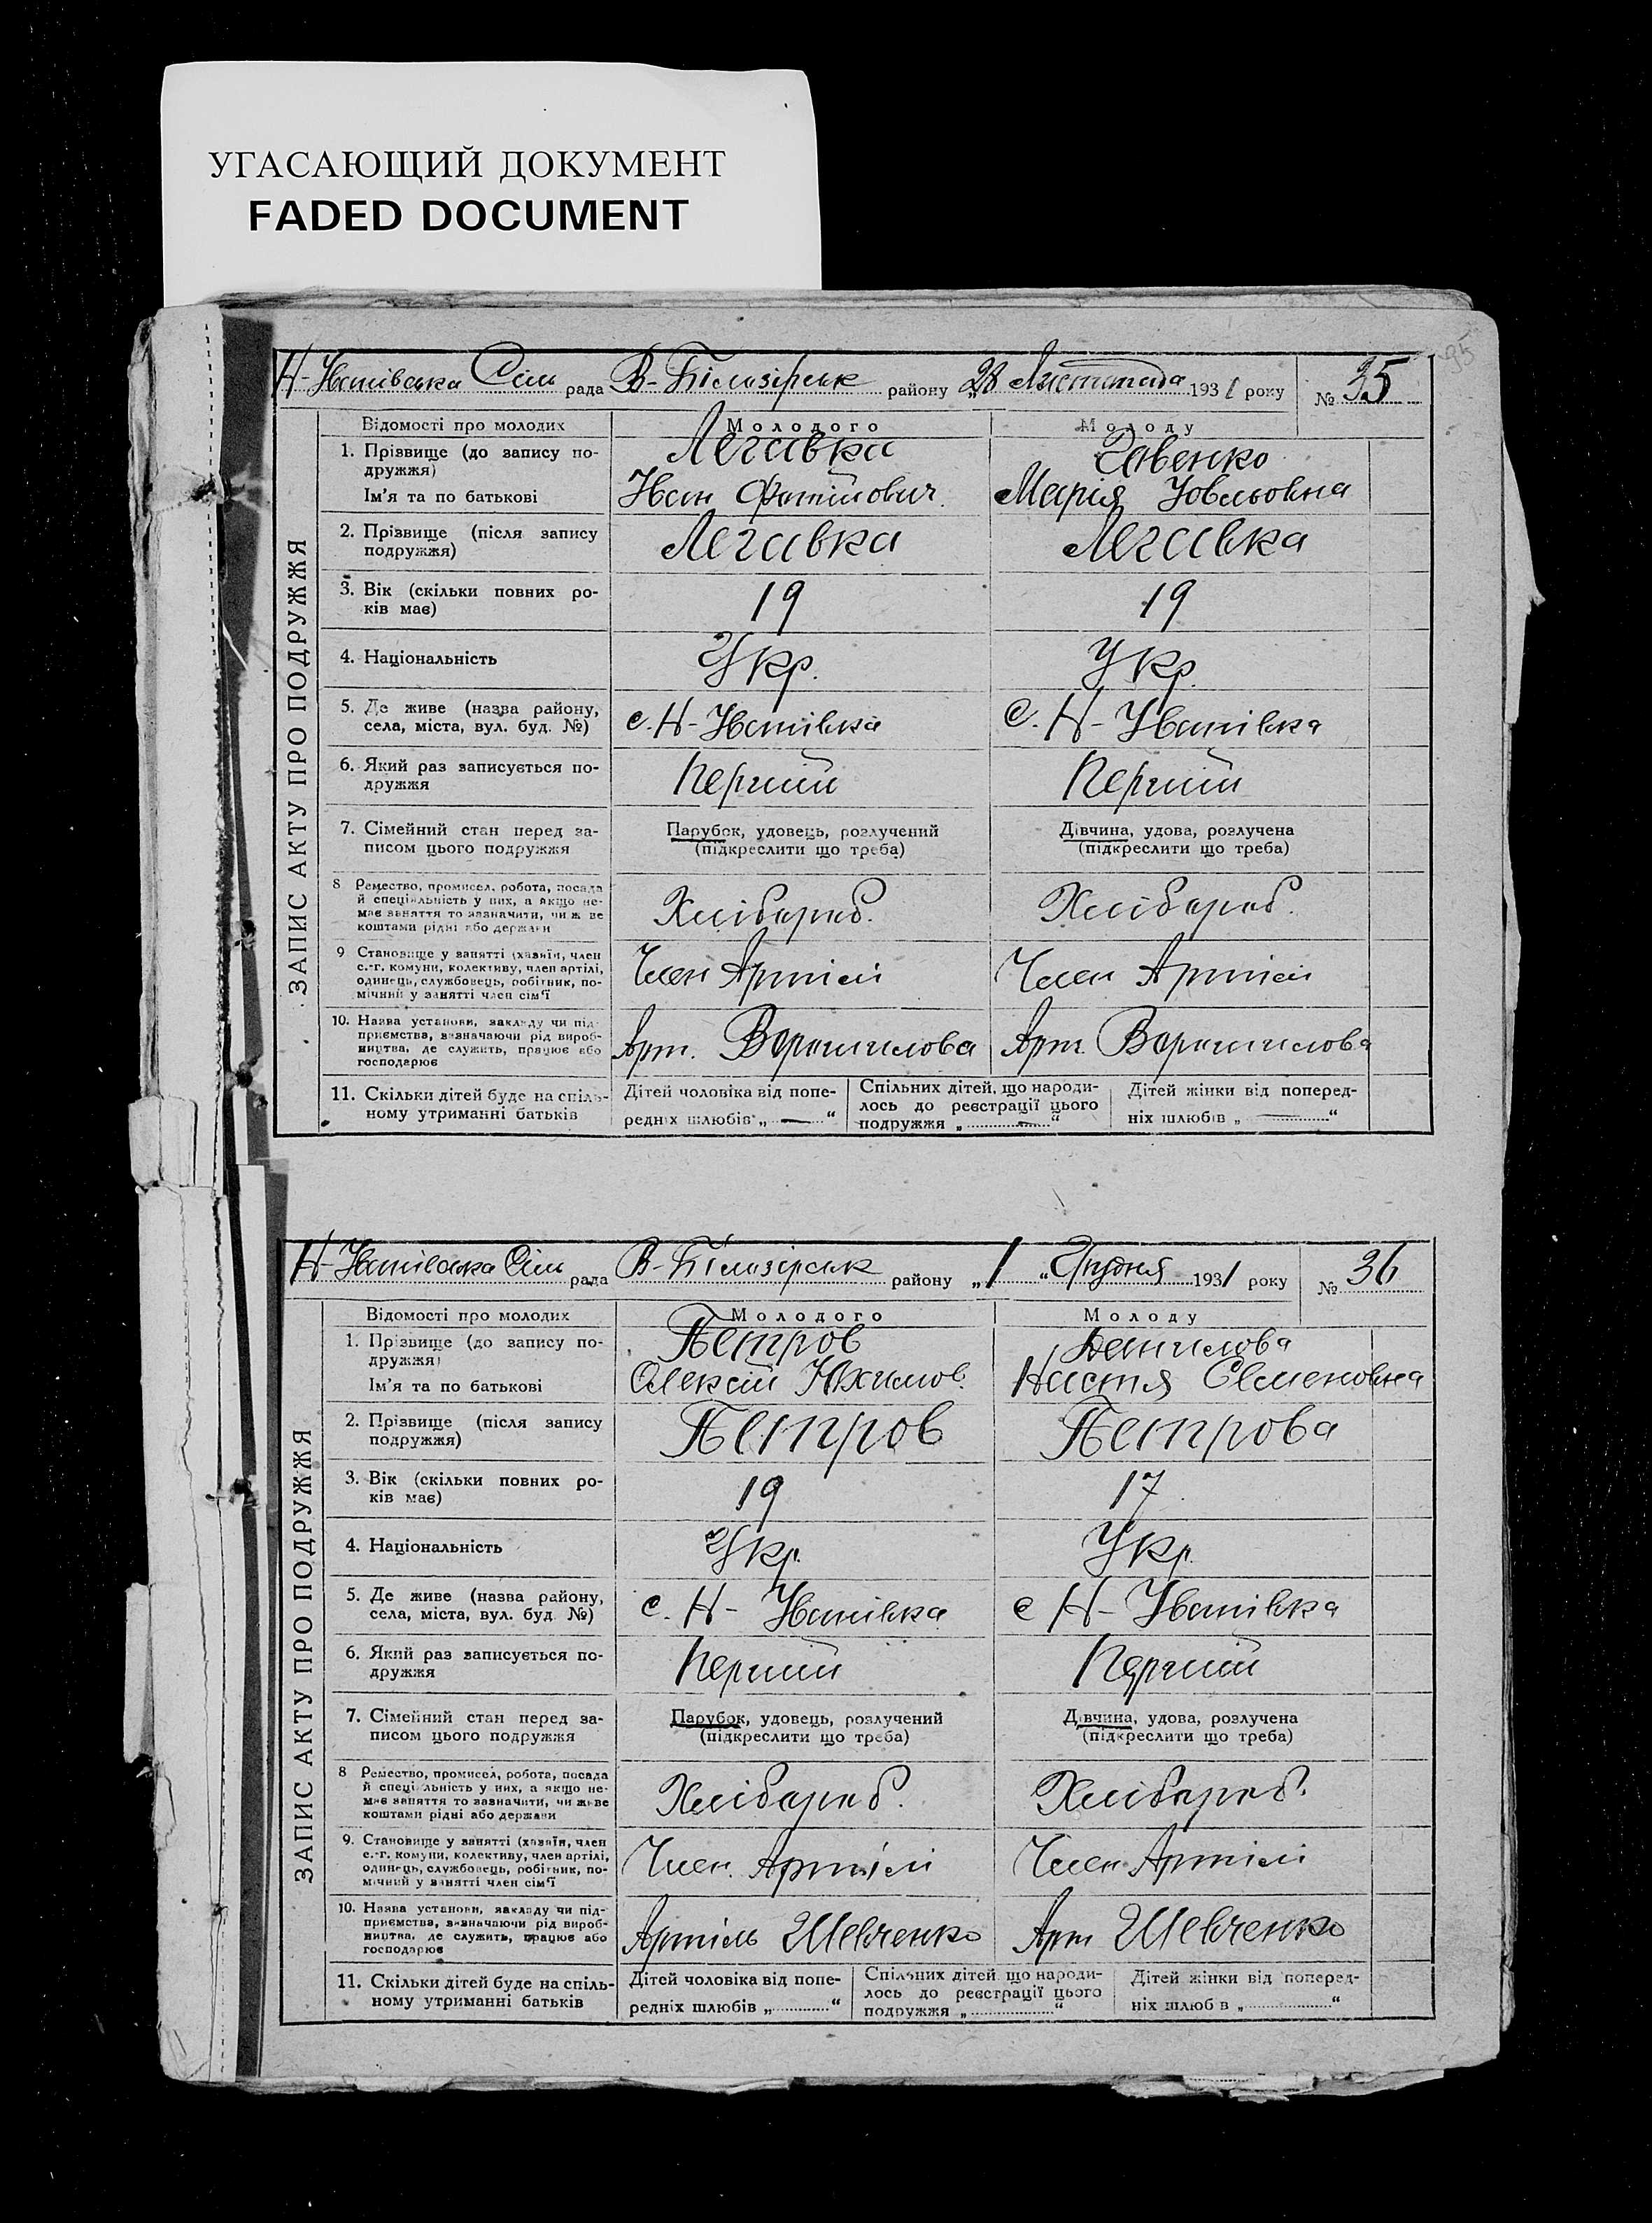 УГАСАЮЩИЙ ДОКУМЕНТ
FADED DOCUMENT
95
Н-Іванівська Сіль рада В-Білозірськ району „28 Листопада 1931 року № 35
ЗАПИС АКТУ ПРО ПОДРУЖЖЯ
Відомості про молодих Молодого Молоду
1. Прізвище (до запису по-
дружжя) Легавка Савенко
Ім'я та по батькові Іван Марія
2. Прізвище (після запису
подружжя) Легавка Легавка
3. Вік (скільки повних ро-
ків має) 19 19
4. Національність Укр. Укр.
5. Де живе (назва району,
села, міста, вул. буд. №) с. Н-Іванівка с. Н-Іванівка
6. Який раз записується по-
дружжя Перший Перший
7. Сімейний стан перед за-
писом цього подружжя Парубок, удовець, розлучений
(підкреслити що треба) Дівчина, удова, розлучена
(підкреслити що треба)
8 Ремество, промисел, робота, посада
й спеціяльність у них, а якщо не-
має заняття то зазначити, чи ж ве
коштами рідні або держави Хлібороб. Хлібороб.
9 Становище у занятті (хазяїн, член
с.-г. комуни, колективу, член артілі,
одинець, службовець, робітник, по-
мічний у занятті член сім'ї Член Артілі Член Артілі
10. Назва установи, закладу чи під-
приємства, визначаючи рід вироб-
ництва, де служить, працює або
господарює Арт. Ворошилова Арт. Ворошилова
11. Скільки дітей буде на спіль-
ному утриманні батьків Дітей чоловіка від попе-
редніх шлюбів „ — “ Спільних дітей, що народи-
лось до реєстрації цього
подружжя „ — “ Дітей жінки від поперед-
ніх шлюбів „ — “
Н-Іванівська Сіль рада В-Білозірськ району „1 “ Грудня 1931 року № 36
ЗАПИС АКТУ ПРО ПОДРУЖЖЯ
Відомості про молодих Молодого Молоду
1. Прізвище (до запису по-
дружжя) Петров Данилова
Ім'я та по батькові Олексій Юхимов. Настя Семеновна
2. Прізвище (після запису
подружжя) Петров Петрова
3. Вік (скільки повних ро-
ків має) 19 17
4. Національність Укр. Укр.
5. Де живе (назва району,
села, міста, вул. буд. №) с. Н-Іванівка с Н-Іванівка
6. Який раз записується по-
дружжя Перший Перший
7. Сімейний стан перед за-
писом цього подружжя Парубок, удовець, розлучений
(підкреслити що треба) Дівчина, удова, розлучена
(підкреслити що треба)
8 Ремество, промисел, робота, посада
й спеціяльність у них, а якщо не-
має заняття то зазначити, чи живе
коштами рідні або держави Хлібороб. Хлібороб.
9. Становище у занятті (хазяїн, член
с.-г. комуни, колективу, член артілі,
одинець, службовець, робітник, по-
мічний у занятті член сім'ї Член Артілі Член Артілі
10. Назва установи, закладу чи під-
приємства, визначаючи рід вироб-
ництва, де служить, працює або
господарює Артіль Шевченко Арт Шевченко
11. Скільки дітей буде на спіль-
ному утриманні батьків Дітей чоловіка від попе-
редніх шлюбів „ “ Спільних дітей, що народи-
лось до реєстрації цього
подружжя „ “ Дітей жінки від поперед-
ніх шлюбів „ “